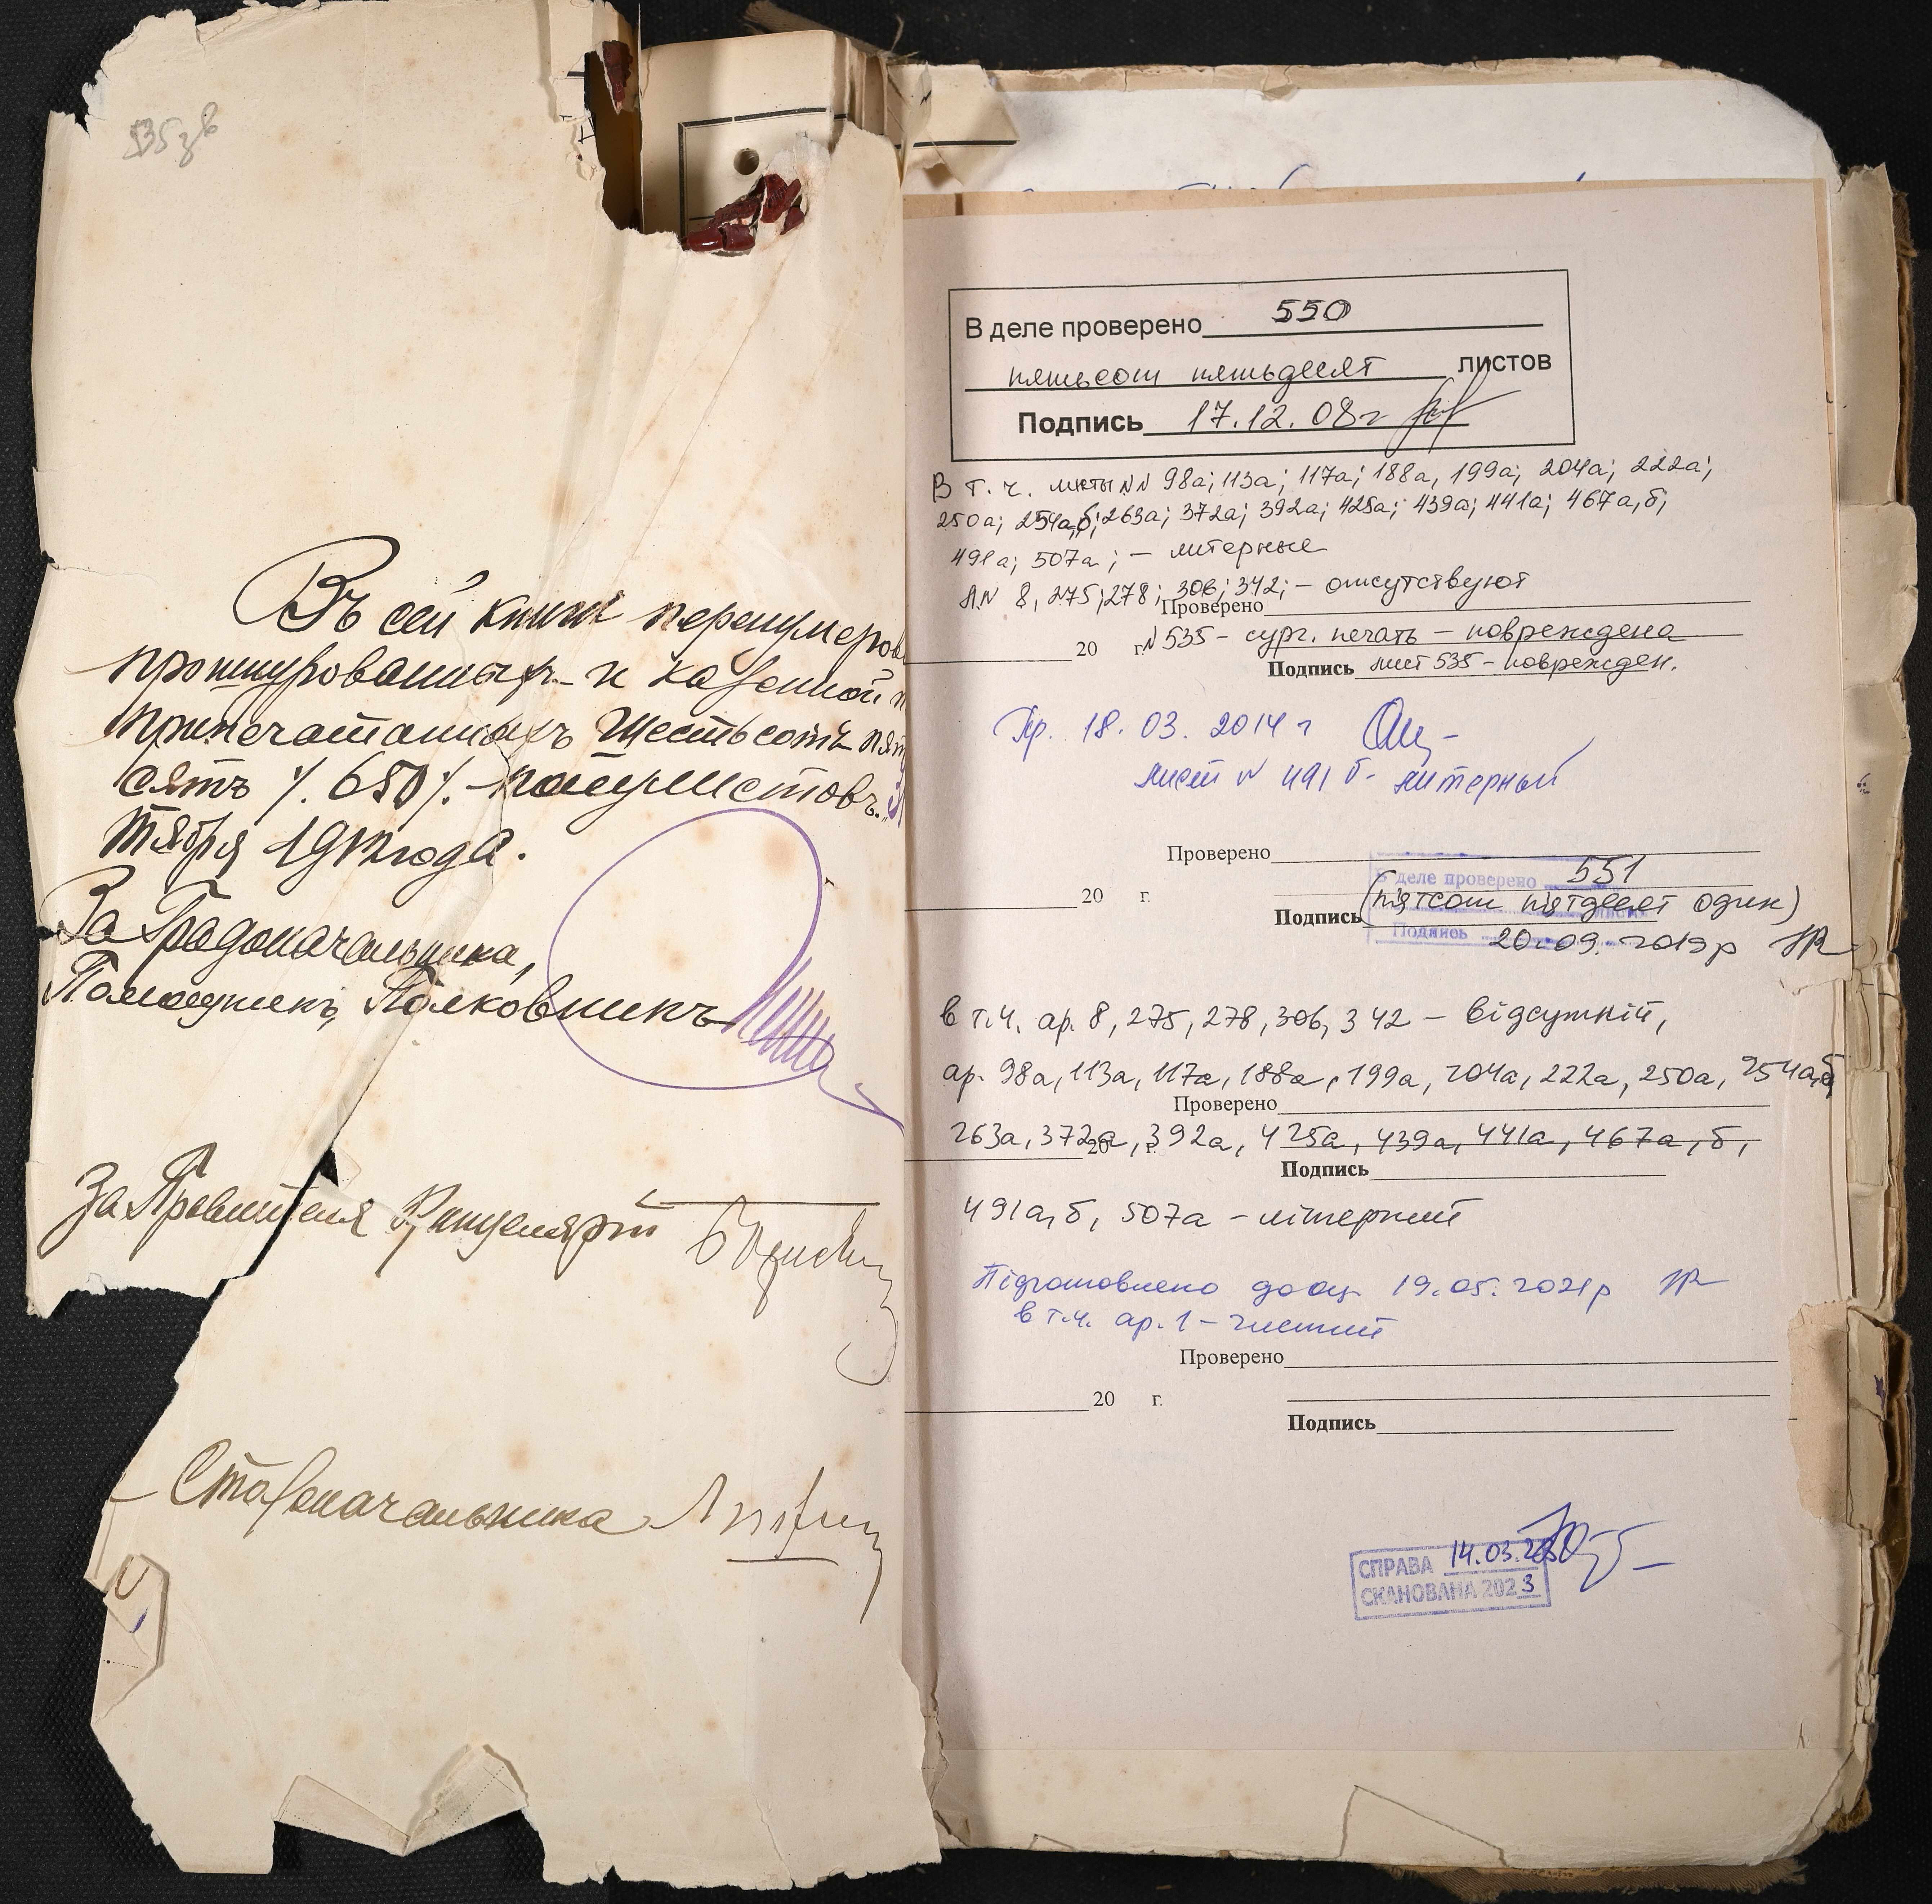 535 зв
Въ сей книги перенумеров
прошнурованныхъ и казенной п
припечатанныхъ Шестьсотъ пят
сятъ /. 650 /. полулистовъ.
тября 1911 года.
За Градоначальника,
Помощникъ, Полковникъ
За Правителя Канцелярiи
Столоначальника
В деле проверено 550
пятьсот пятьдесят листов
Подпись 17.12.08г
В т.ч. листы NN 98а; 113а; 117а; 188а, 199а; 204а; 222а;
250а; 254а,б; 263а; 372а; 392а; 425а; 439а; 441а; 467а,б;
491а; 507а; – литерные
NN 8, 275; 278; 306; 342; – отсутствуют
Проверено
20 г. N 535 - сург. печать – повреждена
Подпись лист 535 – поврежден.
Пр. 18. 03. 2014 г
лист N 491 б - литерный
Проверено
В деле проверено 551
20 г. (пятсот пятдесят один)
Подпись
Подпись 20.09.2019р
в т.ч. ар. 8, 275, 278, 306, 342 – відсутній,
ар. 98а, 113а, 117а, 188а, 199а, 204а, 222а, 250а, 254а,б,
Проверено
263а, 372а, 392а, 425а, 439а, 441а, 467а, б,
20 г.
Подпись
491а, б, 507а – літерний
Підготовлено до оц. 19.05.2021р
в т.ч. ар. 1 – чистий
Проверено
20 г.
Подпись
СПРАВА 14.03.
СКАНОВАНА 2023